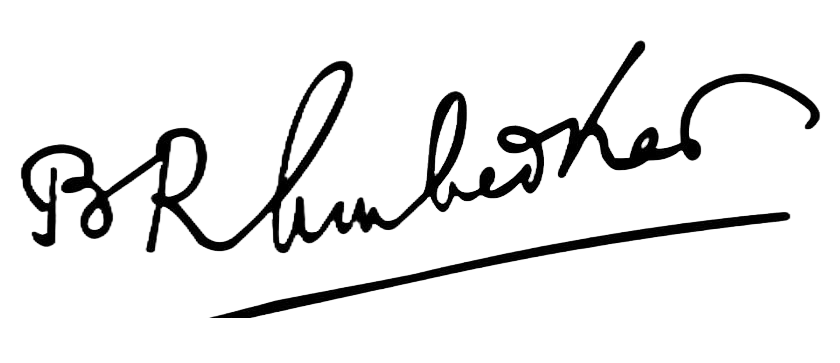 B R Ambedkar